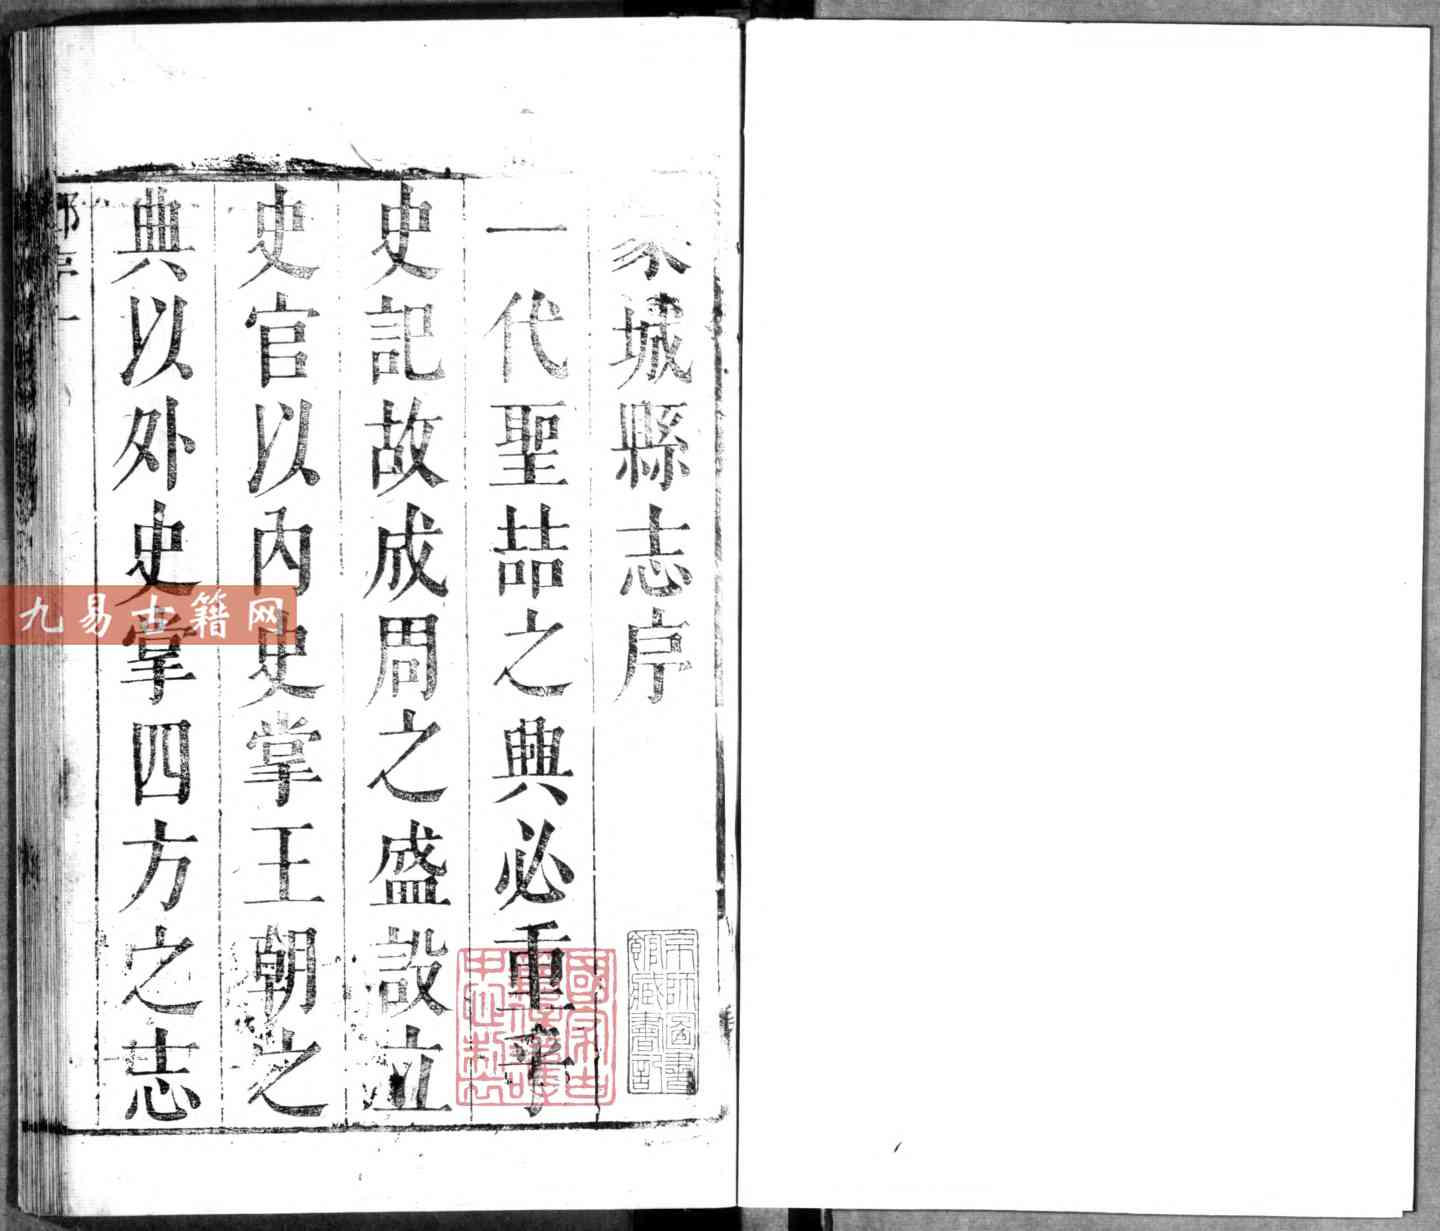 蒙城縣志序
一代聖喆之典必重乎
史記故成周之盛設立
史官以內史掌王朝之
典以外史掌四方之志
京師圖書
館藏書記
九易古籍网